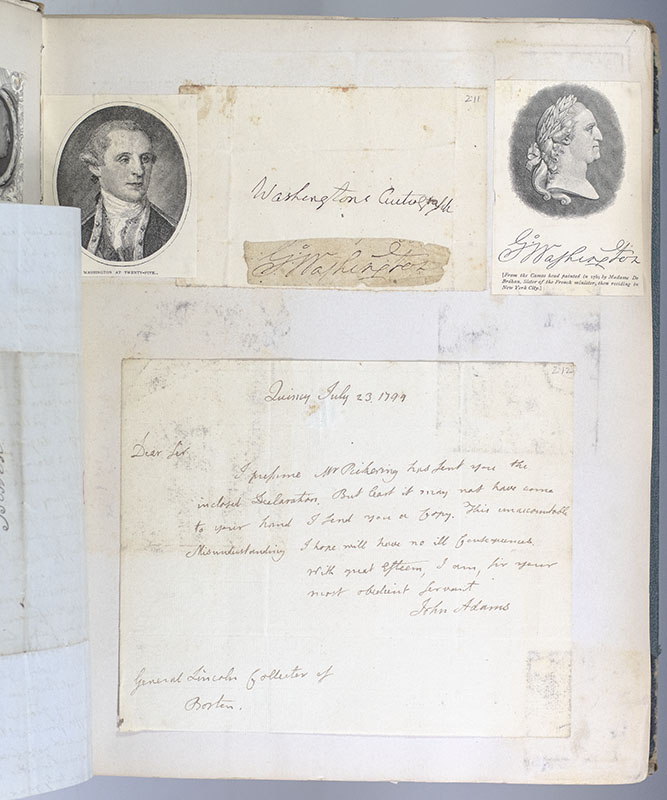 WASHINGTON AT TWENTY-FIVE.
211
Washingtons Autograph
Go Washington
Go Washington
[From the Cameo head painted in 1789 by Madame De
Bréhan, Sister of the French minister, then residing in
New York City.]
212
Quincy July 23. 1794
Dear Sir
I presume Mr Pickering has sent you the
inclosed Declaration. But least it may not have come
to your hand I send you a Copy. This unaccountable
Misunderstanding I hope will have no ill Consequences.
With great Esteem, I am, Sir your
most obedient Servant
John Adams
General Lincoln Collector of
Boston.